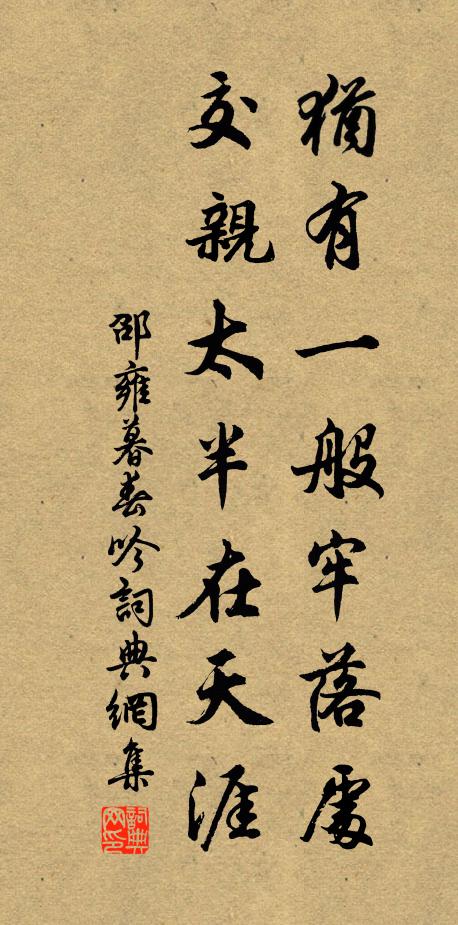 猶有一般牢落處
交親太半在天涯
邵雍暮春吟詞典網集
詞典网印